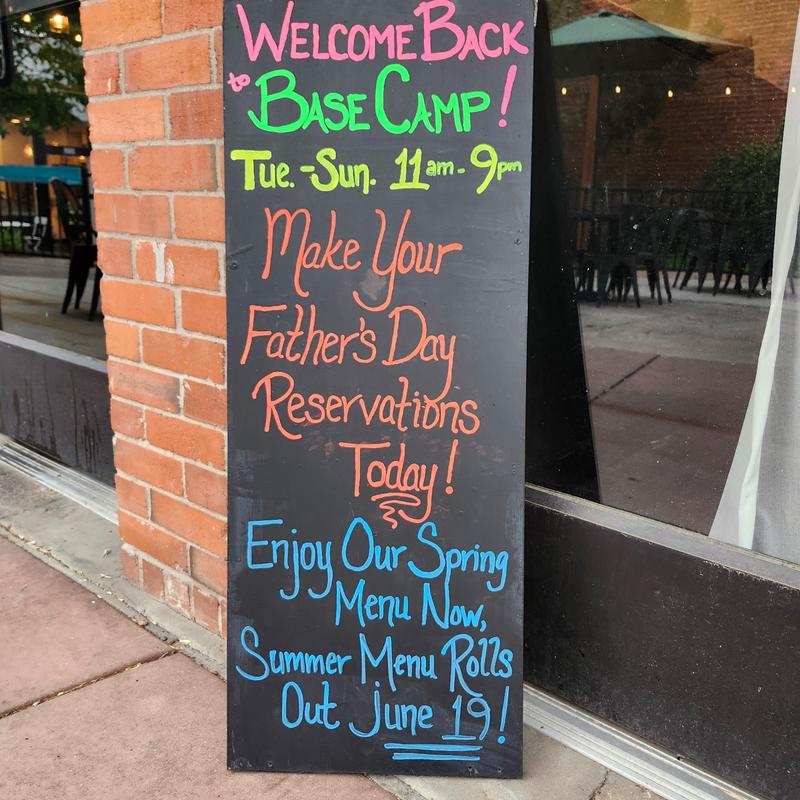 WELCOME BACK
to BASE CAMP!
Tue.-Sun. 11am-9pm
Make Your
Father's Day
Reservations
Today!
Enjoy Our Spring
Menu Now,
Summer Menu Rolls
Out June 19!